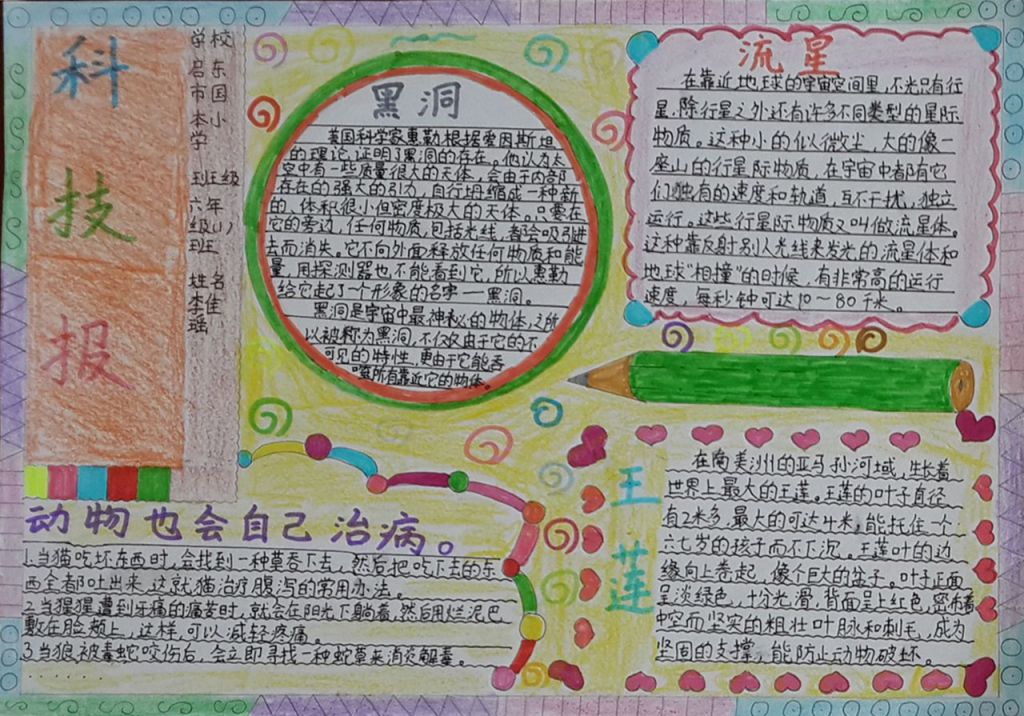 科
技
报
学校
启东
市国
本小
学
班级
六年
级(1)
班
姓名
李佳
瑶
黑洞
美国科学家惠勒根据爱因斯坦
的理论,证明了黑洞的存在。他认为太
空中有一些质量很大的天体,会由于内部
存在的强大的引力,自行坍缩成一种新
的、体积很小但密度极大的天体。只要在
它的旁边,任何物质,包括光线,都会吸引进
去而消失。它不向外面释放任何物质和能
量,用探测器也不能看到它,所以惠勒
给它起了个形象的名字——黑洞。
黑洞是宇宙中最神秘的物体,之所
以被称为黑洞,不仅仅由于它的不
可见的特性,更由于它能吞
噬所有靠近它的物体。
流星
在靠近地球的宇宙空间里,不光只有行
星,除行星之外还有许多不同类型的星际
物质。这种小的似微尘,大的像一
座山的行星际物质,在宇宙中都有它
们独有的速度和轨道,互不干扰,独立
运行。这些行星际物质又叫做流星体。
这种靠反射别人光线来发光的流星体和
地球“相撞”的时候,有非常高的运行
速度,每秒钟可达10～80千米。
动物也会自己治病。
1.当猫吃坏东西时,会找到一种草吞下去,然后把吃下去的东
西全都吐出来,这就猫治疗腹泻的常用办法。
2.当猩猩遭到牙痛的痛苦时,就会在阳光下躺着,然后用烂泥巴
敷在脸颊上,这样,可以减轻疼痛。
3.当狼被毒蛇咬伤后,会立即寻找一种蛇草来消炎解毒。
........
王
莲
在南美洲的亚马孙河域,生长着
世界上最大的王莲。王莲的叶子直径
有2米多,最大的可达4米,能托住一个
六七岁的孩子而不下沉。王莲叶的边
缘向上卷起,像个巨大的盆子。叶子正面
呈淡绿色,十分光滑,背面呈土红色,密布着
中空而坚实的粗壮叶脉和刺毛,成为
坚固的支撑,能防止动物破坏。